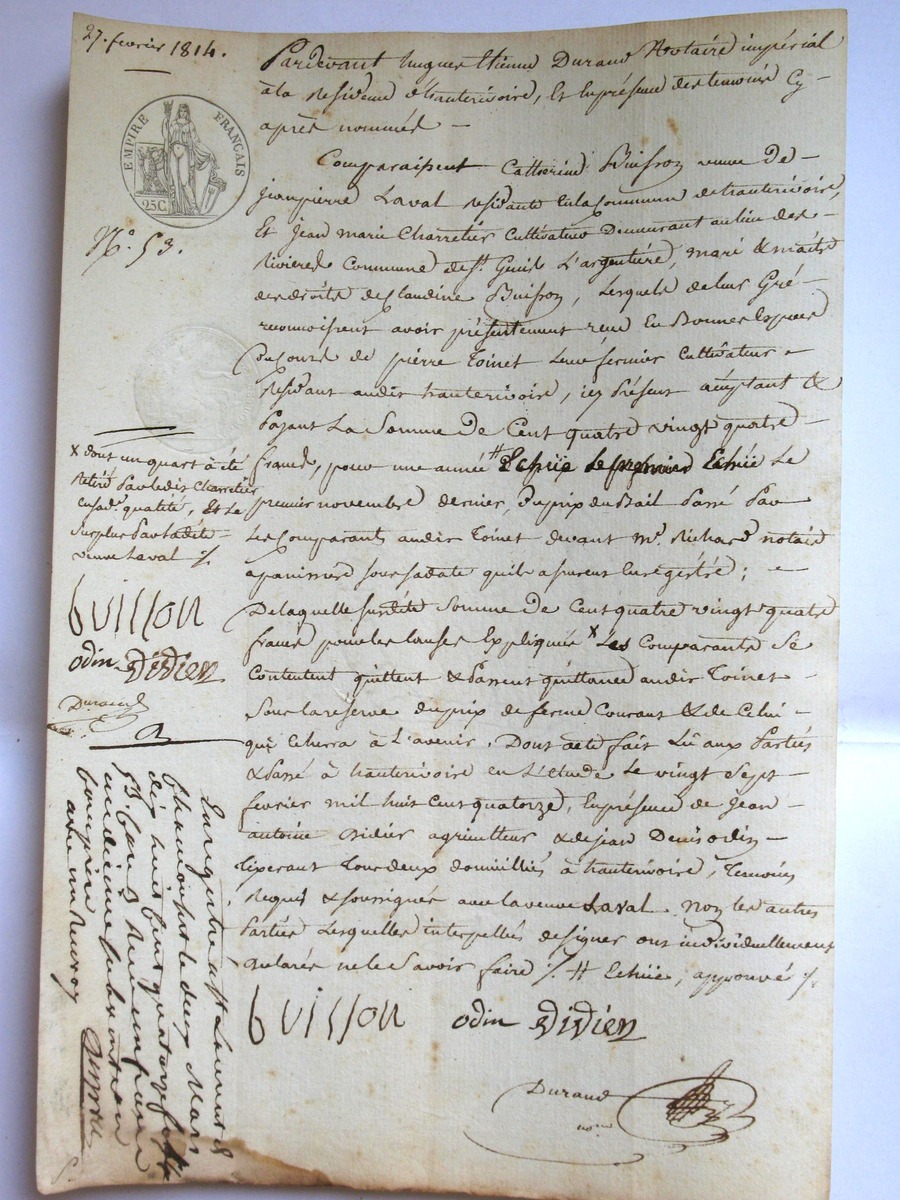 27. fevrier 1814.
EMPIRE FRANÇAIS
25C.
N.º 53.
Pardevant hugues Etienne Durand Notaire impérial
à la Residence d'hauterivoire, Et En présence des temoins Cy-
après nommés —
Comparaissent Catherine Buisson veuve De-
jeanpierre Laval residante En la Commune de hauterivoire,
Et Jean marie Charretier Cultivateur Demeurant au lieu des-
rivieres Commune de St. Genis L'argentiére, mari & maitre
des droits de Claudine Buisson, Lesquels de leur Gré-
reconnoissent avoir présentement reçu En Bonnes Especes
Du Cours de pierre Toinet Leur fermier Cultivateur
Residant audit hauterivoire, icy Présent acceptant &
Payant La Somme De Cent quatre vingt quatre
francs, pour une année # Echüe Le
premier novembre dernier, Du prix du Bail Passé Par
Les Comparants audit Toinet devant Mr. Richard notaire
a panissiere sous sa date qu'ils assurent Enregistré; —
De laquelle susdite Somme De Cent quatre vingt quatre
francs pour les causes Expliquées x Les Comparants Se
Contentent quittent & Passent quittance audit Toinet-
Sous la réserve du prix de ferme Courant & de Celui-
qui Echerra à L'avenir. Dont acte fait Lû aux Parties
& Passé à hauterivoire en L'étude Le vingt Sept
fevrier mil huit Cent quatorze, En présence de Jean-
antoine Didier agriculteur & de jean Denis odin
Tisserant Tous deux domiciliés à hauterivoire, Temoins
Requis & soussignés avec la veuve Laval. Non les autres
Parties Lesquelles interpellés de signer ont individuellement
declarés ne le Savoir faire ./. # Echüe, approuvé ./.
x dont un quart à été
Retiré Par ledit Charretier
En sad. qualité, Et Le
Surplus Par Ladite
veuve Laval ./.
buisson
odin Didier
Durand
Enregistré à St Laurent de
Chamousset le deux Mars
dix huit Cent quatorze
53.
Reçu un franc
buisson odin Didier
Durand